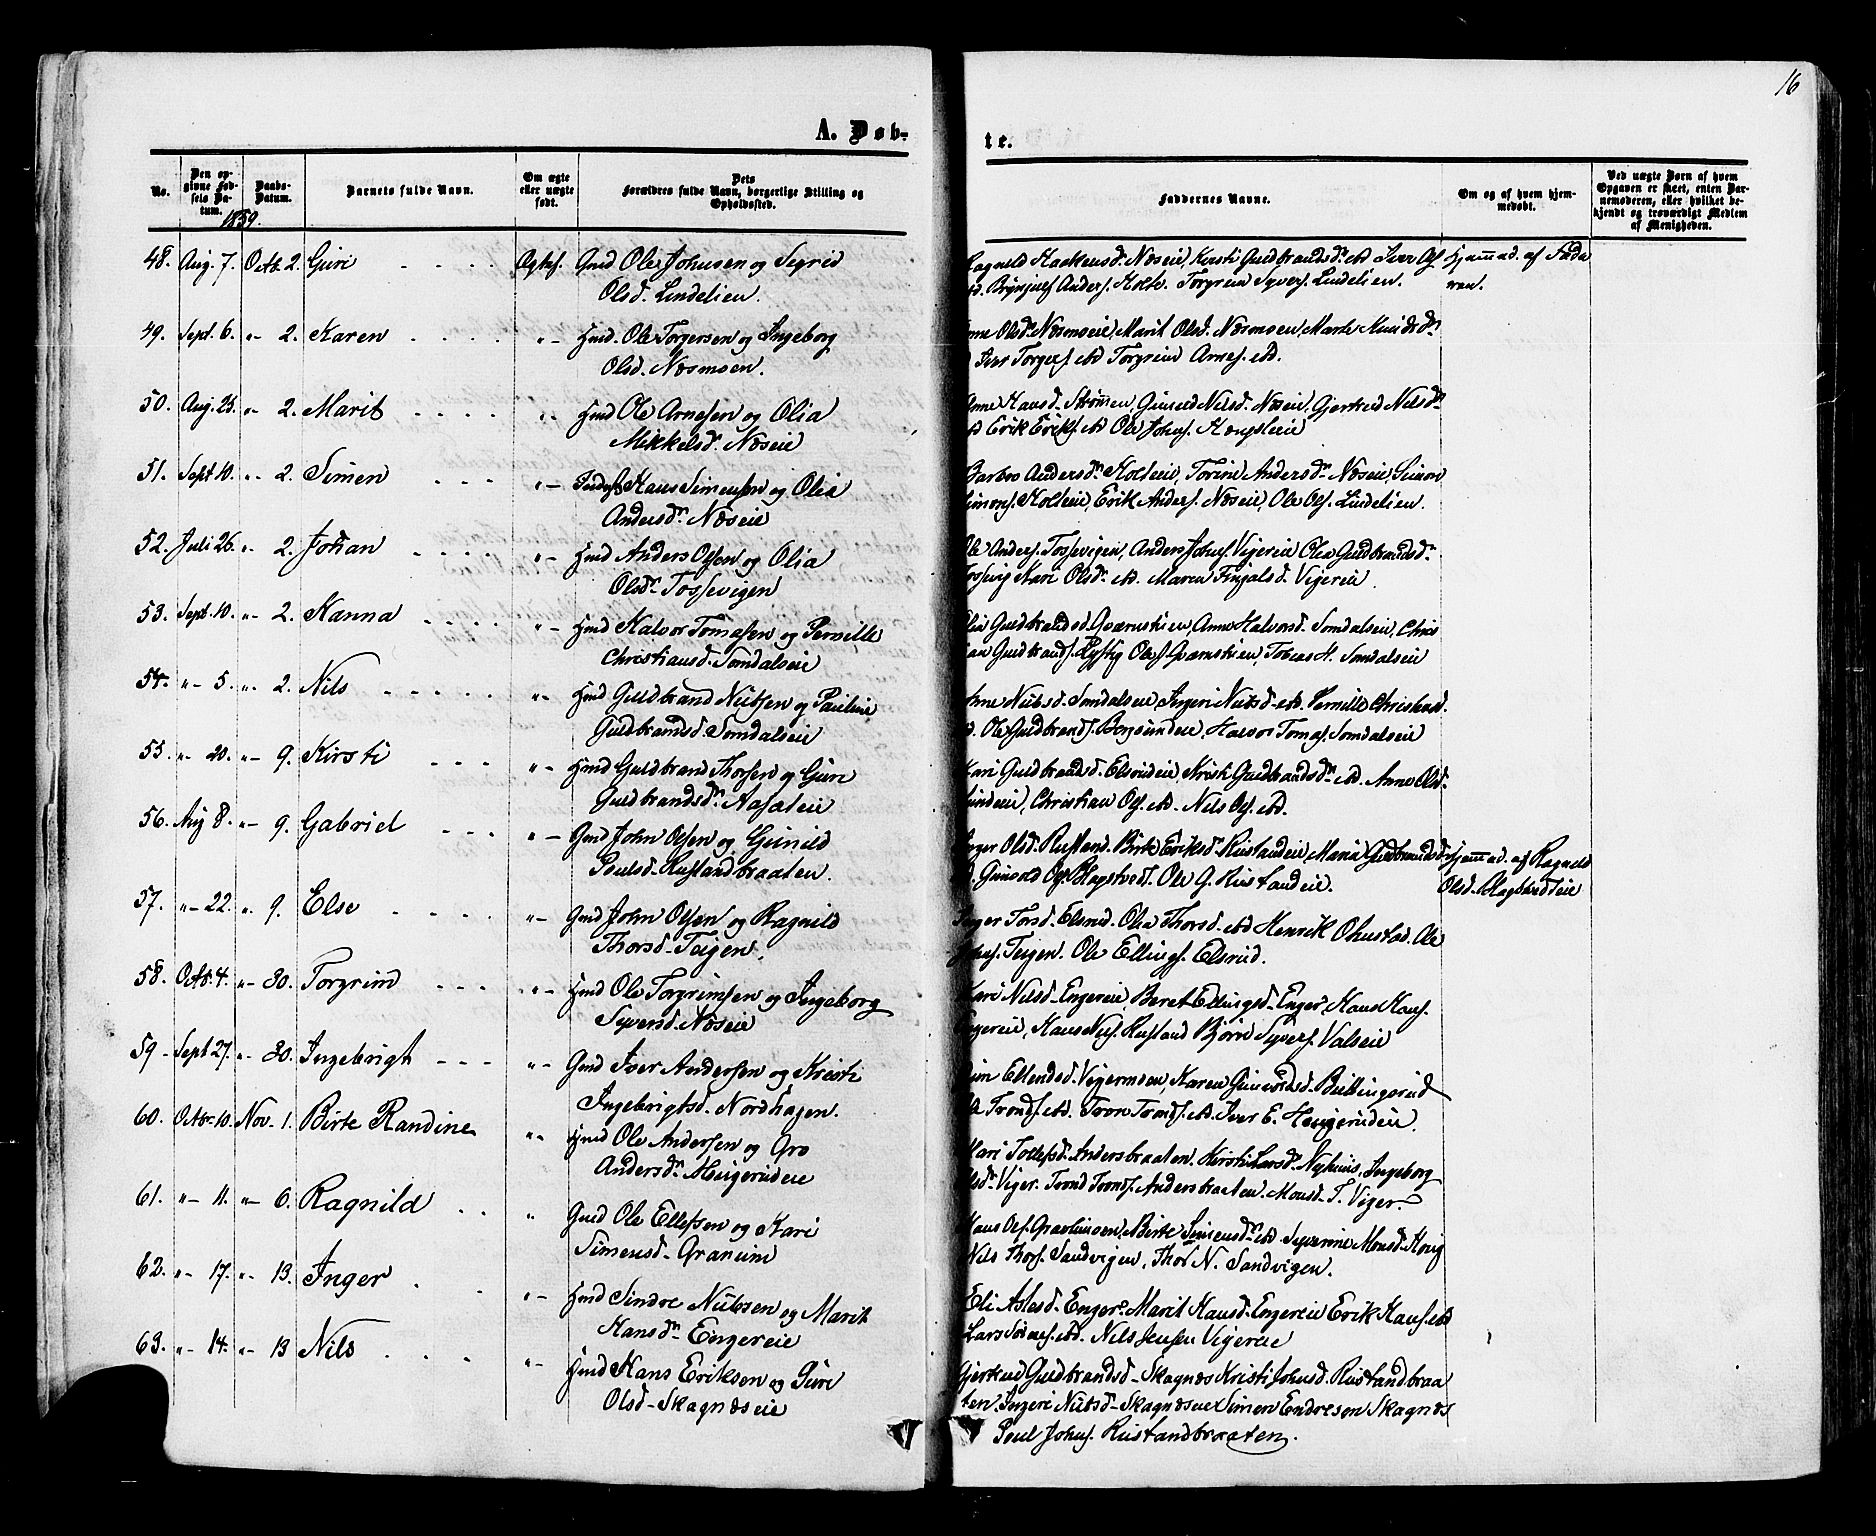 16
A. Døb-
te.
No.
Den opgivne Fødsels Datum.
Daabs-Datum.
Barnets fulde Navn.
Om ægte eller uægte født.
Dets Forældres fulde Navn, borgerlige Stilling og Opholdssted.
Faddernes Navne.
Om og af hvem hjemmedøbt.
Ved uægte Børn af hvem Opgaven er skeet, enten Barnemoderen, eller hvilket bekjendt og troværdigt Medlem af Menigheden.
1859.
48. Aug. 7. Octb. 2. Guri Ægtef. Gmd Ole Johnsen og Sigrid
Olsd. Lindelien.
Ragnild Haakensd. Næseie, Kirsti Guldbrandsd. ibd Iver
Brynjulf Anders. Holte. Torgrim Syvers. Lindelien.
Hjemmed. af Fade
ren.
49. Sept. 6. " 2. Karen "- Hmd. Ole Torgersen og Ingeborg
Olsd. Næsmoen.
Olsdr Næsmoeie, Marit Olsd. Næsmoen, Marte
Iver Torgers. ibd Torgrim Arnes. ibd.
50. Aug. 28. " 2. Marit " Hmd Ole Arnesen og Olia
Mikkelsd. Næseie
Anne Hansd. Strømen, Gunild Nilsd. Næseie, Gjertrud Nilsdr
Erik Eriks. ibd Ole Johns.
51. Sept 10. " 2. Simen "- Inderst Hans Simensen og Olia
Andersdr Næseie
Barbro Andersdr Holteie, Torine Andersdr Næseie, Simon
Simons. Holteie, Erik Anders. Næseie, Ole Ols. Lindelien.
52. Juli 26. " 2. Johan "- Hmd Anders Olsen og Olia
Olsdr Tossevigen
Ole Anders. Tossevigen, Anders Johns. Vigereie Olea Guldbrandsdr
Tossevig Kari Olsdr ibd. Maren Fingalsd. Vigereie.
53. Sept. 10. " 2. Hanna "- Hmd Halvor Tomasen og Pernille
Christiansd. Somdalseie
Olia Guldbrandsd. Qværnstien, Anne Halvorsd. Somdalseie, Chris
tian Guldbrands. Rystig Ole Qværnstien, Tobias H. Somdalseie
54. "- 5. " 2. Nils "- Hmd Guldbrand Nubsen og Pauline
Guldbrandsd. Somdalseie
Anne Nubsd. Somdalseie, Ingeri Nubsd. ibd. Pernille Christiansd.
Ole Guldbrands. Borgsundeie, Halvor Tomas. Somdalseie
55. "- 20. "- 9. Kirsti "- Hmd Guldbrand Thorsen og Guri
Guldbrandsdr Aasateie
Kari Guldbrandsd. Elsrudeie, Kristi Guldbrandsdr ibd. Anne Olsd.
Christian Ols. ibd. Nils Ols. ibd.
56. Aug 8. "- 9. Gabriel "- Gmd John Olsen og Gunild
Poulsd. Rustandbraaten.
Inger Olsd. Rustand. Birte Eriksd. Rustandeie, Maria Guldbrandsd.
Gunvald Ols. Blagstved. Ole G. Rustandeie.
Hjemmed. af Ragnild
Olsd.
57. "- 22. " 9. Else "- Gmd John Olsen og Ragnild
Thorsd. Teigen.
Inger Torsd. Elsrud. Olia Thorsd. ibd Henrik Ohnstad. Ole
Johns. Teigen. Ole Ellings. Elsrud.
58. Octb. 4. "- 30. Torgrim "- Hmd Ole Torgrimsen og Ingeborg
Syversd. Næseie
Kari Nilsd. Engereie, Beret Ellingsd. Enger, Hans Hans.
Engereie, Hans Nils. Rustand Bjørn Syvers. Valseie
59 - Sept 27. "- 30. Ingebrigt "- Gmd Iver Andersen og Kristi
Ingebrigtsd. Nordhagen.
Ellendsd. Vigermoen, Karen Gunvordsd. Bellingsrud
Tronds. ibd. Tron Tronds. ibd. Iver E. Haugerudeie.
60. Octbr 10. Nov. 1. Birte Randine "- Hmd Ole Andersen og Gro
Andersdr Haugerudeie
Kari Tollefsd. Andersbraaten. Kirsti Larsdr Nyhuus, Ingeborg
Olsdr Viger. Trond Tronds. Andersbraaten. Monsd. T. Viger.
61. "- 11. "- 6. Ragnild " Gmd Ole Ellefsen og Kari
Simensd. Granum
Hans Ols. Birte Simensdr ibd. Syverine Monsd. Haug
Nils Thors. Sandvigen, Thor N. Sandvigen.
62. "- 17. "- 13. Inger "- Hmd Sindre Nubsen og Marit
Hansdr Engereie
Eli Aslesd. Enger. Marit Hansd. Engereie Erik Hans. ibd
Lars ibd. Nils Jensen Vigereie
63. "- 14. " 13 Nils "- Hmd Hans Eriksen og Guri
Olsd. Skagnæseie
Gjertrud Guldbrandsd. Skagnæs Kristi Johnsd. Rustandbraa
ten. Ingeri Nubsd. Skagnæseie Simen Endresen Skagnæs
Poul Johns. Rustandbraaten.